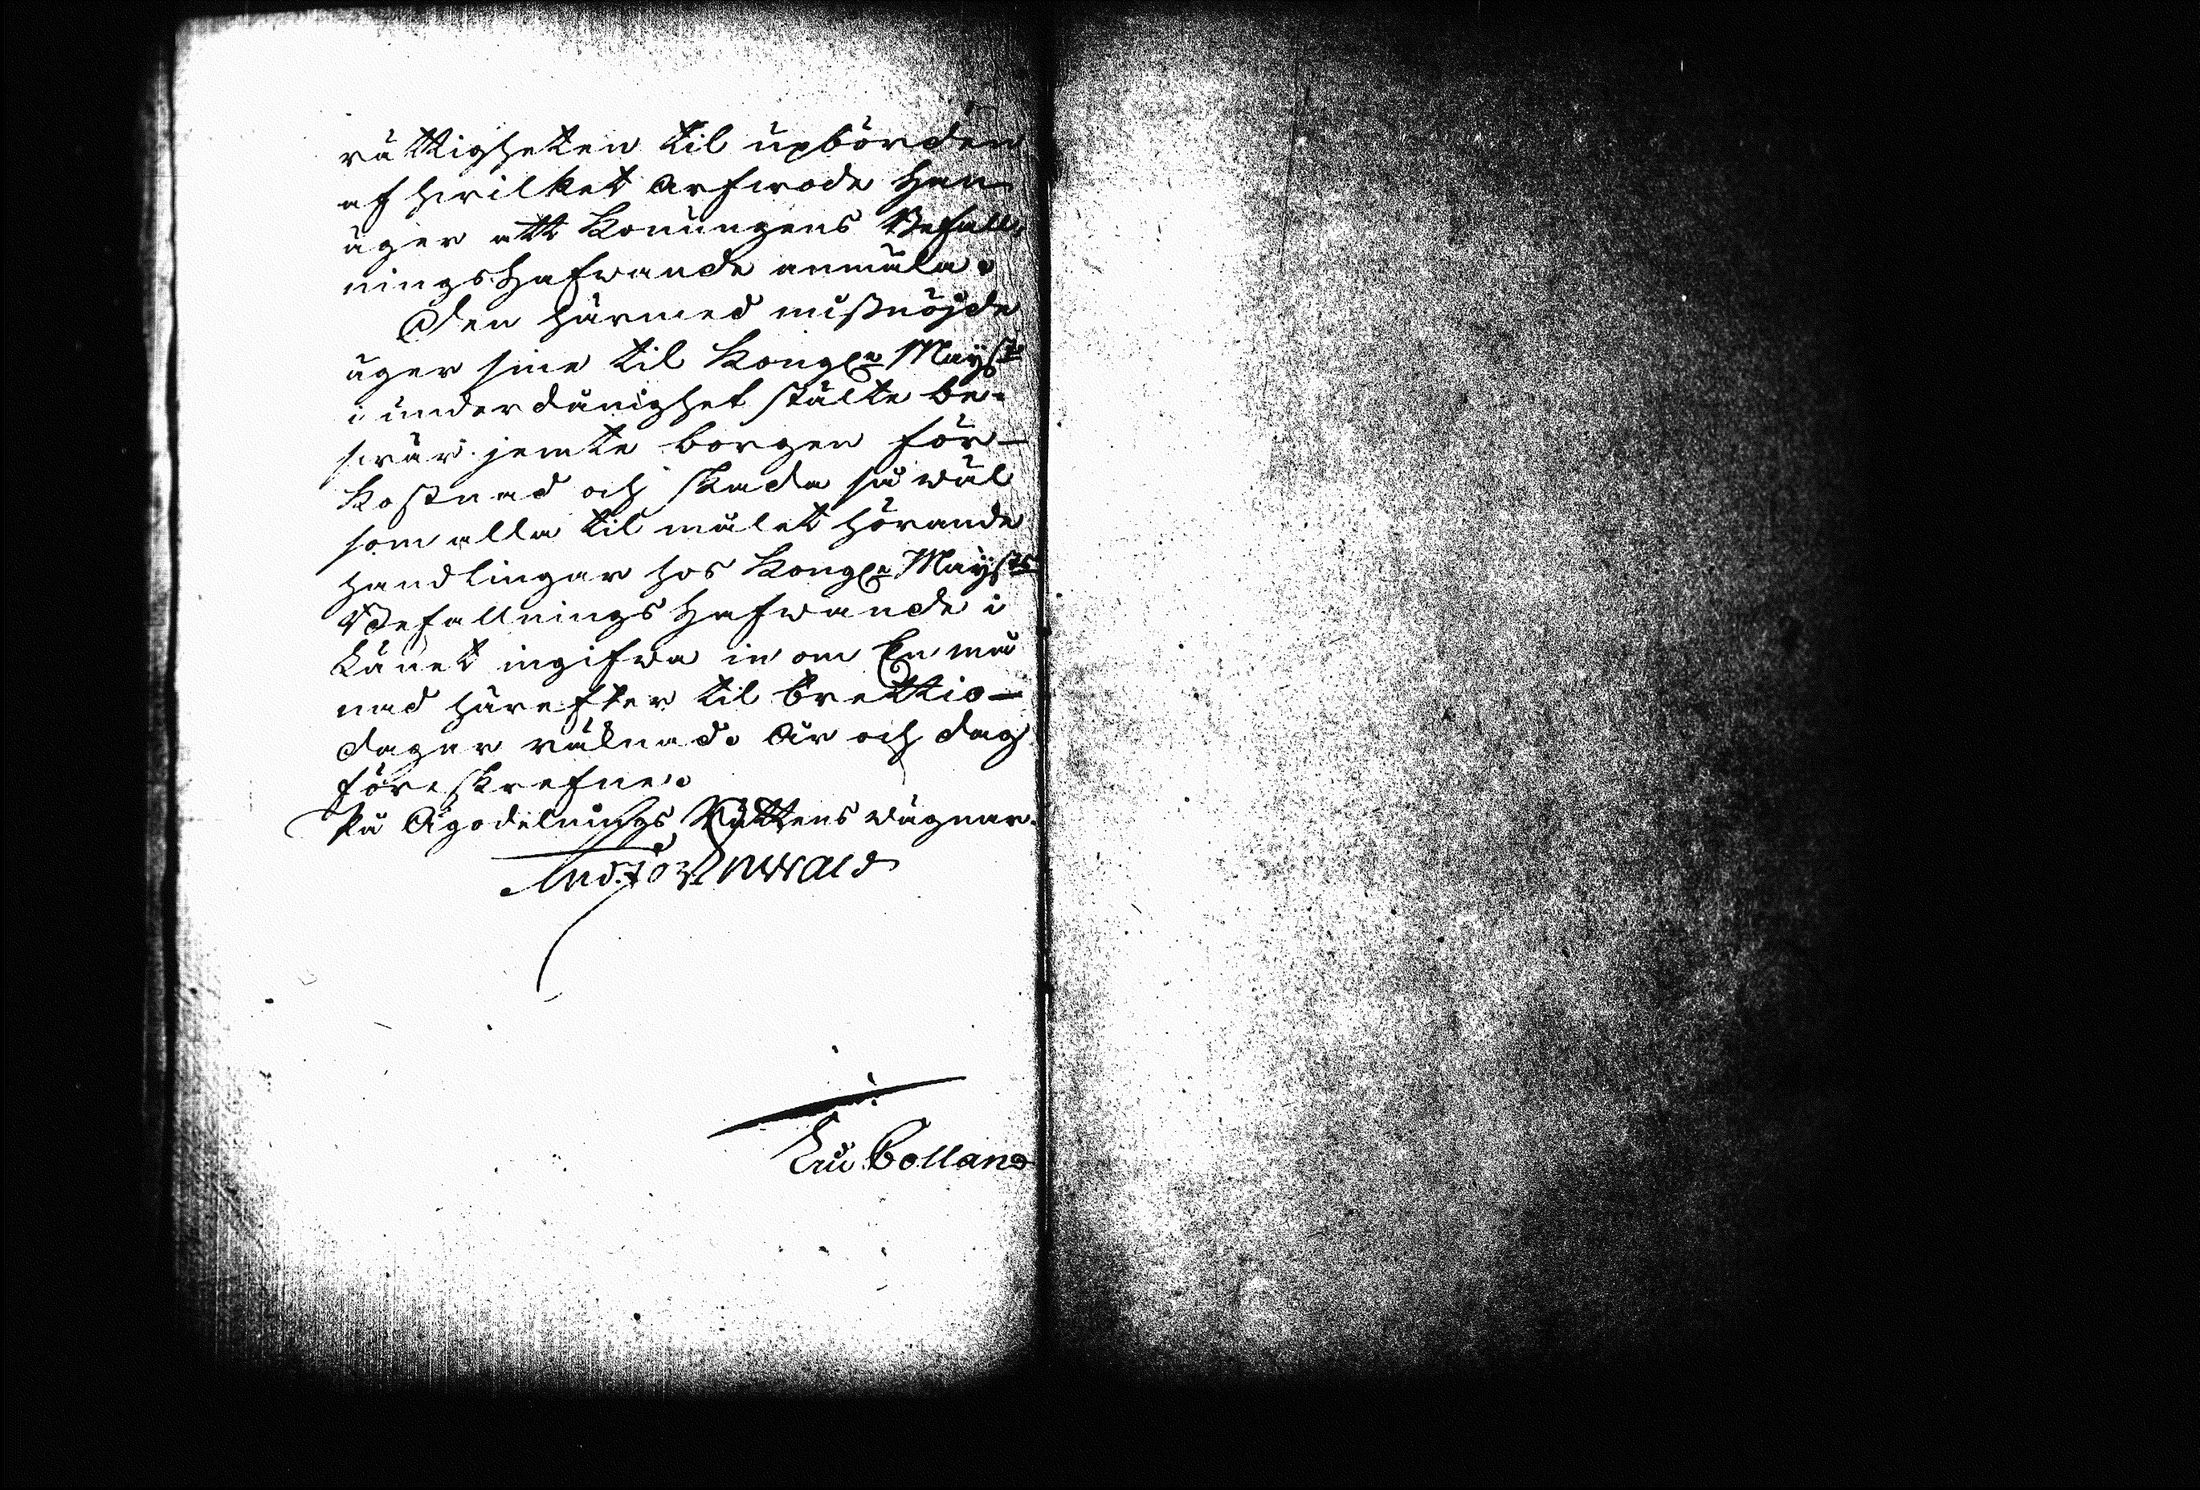 rättigheten til upbörden
af hvilket arfwode Han
äger att Konungens Befall-
ningshafwande anmäla.
Den härmed missnöjde
äger sine til Kongl. Mayst
i underdånighet stälte be-
svär jemte borgen för
kostnad och skada så wäl
som alla til målet hörande
handlingar hos Kongl. Maysts
Befallnings Hafwande i
Länet ingifwa in om En må
nad härefter til trettio
dagar räknad. År och dag
föreskrefne.
På Ägodelnings Rättens wägnar.